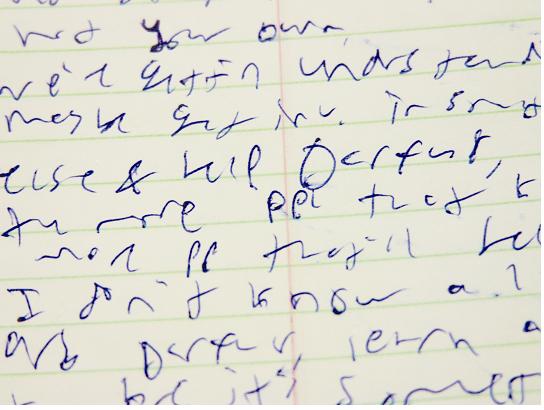 not your own
we'll gettin undrstand
maybe get inv. in smt
else & help Darfur,
the more ppl that k
mor pp that'll hel
I don't know a.l
Darfur, learn a
but it's somet